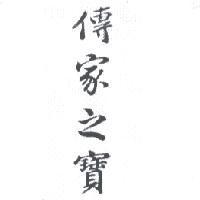 傳家之寶